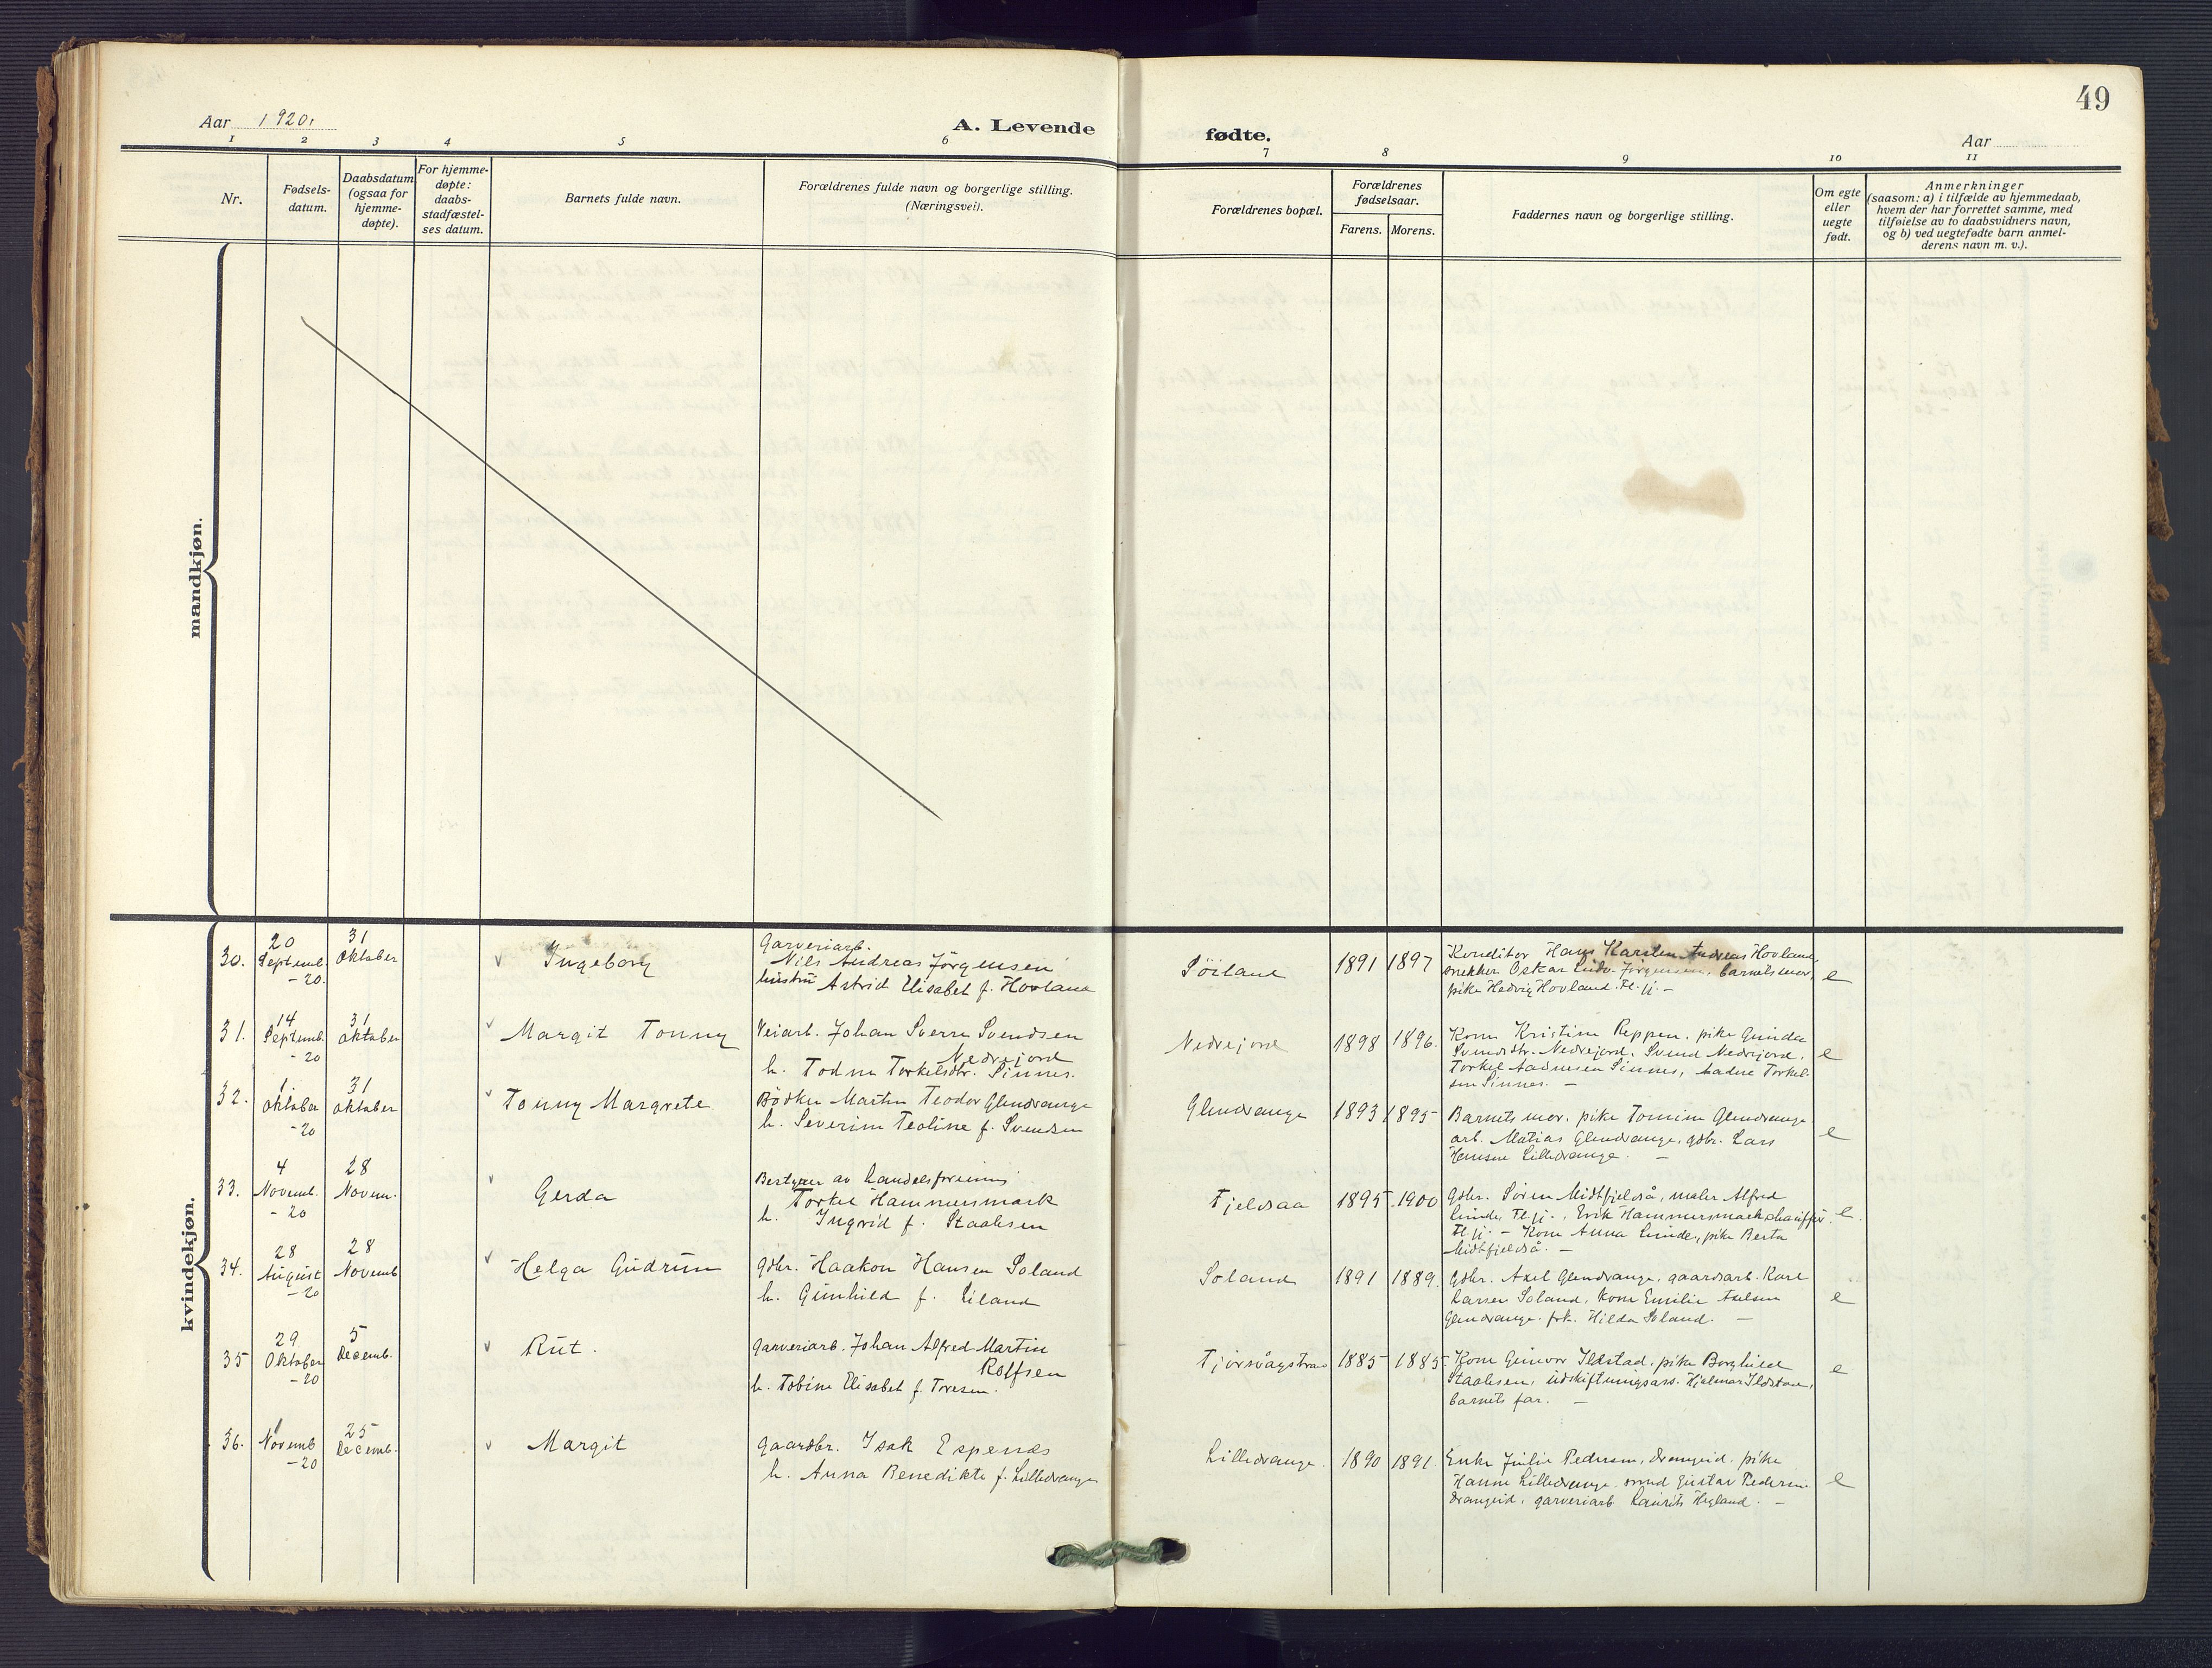 49
Aar 1920.
A. Levende
fødte.
Aar
1 2 3 4 5 6 7 8 9 10 11
Nr.
Fødsels-
datum.
Daabsdatum
(ogsaa for
hjemme-
døpte).
For hjemme-
døpte:
daabs-
stadfæstel-
ses datum.
Barnets fulde navn.
Forældrenes fulde navn og borgerlige stilling.
(Næringsvei).
Forældrenes bopæl.
Forældrenes
fødselsaar.
Farens. Morens.
Faddernes navn og borgerlige stilling.
Om egte
eller
uegte
født.
Anmerkninger
(saasom: a) i tilfælde av hjemmedaab,
hvem der har forrettet samme, med
tilføielse av to daabsvidners navn,
og b) ved uegtefødte barn anmel-
derens navn m. v.).
mandkjøn.
kvindekjøn.
30.
20
Septemb.
-20.
31
Oktober
Ingeborg
Garveriarb.
Nils Andreas Jörgensen
hustru Astrid Elisabet f. Hovland
1891 1897
Konditor Hans Karsten Andreas Hovland,
snekker Oskar Ludv. Jörgensen, barnets mor,
pike Hedvig Hovland. Fl.fj. -
e
31.
14
Septemb.
-20
31
Oktober
Margit Tonny
Veiarb. Johan Sverre Svendsen
Nedrejord
h. Todne Torkelsdtr. Sinnes.
Nedrejord
1898 1896.
Kone Kristine Reppen, pike Gunda
Svendsdtr. Nedrejord, Svend Nedrejord,
Torkel Aadnesen Sinnes, Aadne Torkel-
sen Sinnes. -
e
32.
1.
Oktober
-20
31
Oktober
Tonny Margrete
Bödker Martin Teodor Glendrange
h. Severine Teoline f. Svendsen
Glendrange
1893 1895
Barnets mor, pike Tomine Glendrange
arb. Matias Glendrange, gbr. Lars
Hansen Lilledrange. -
e
33.
4
Novemb.
-20
28
Novem.
Gerda
Bestyrer av Landelsforening
Torkel Hammersmark
h. Ingrid f. Staalesen
Fjeldsaa
1895 1900
Gbr. Sören Midtfjeldså, maler Alfred
Lunde, Fl.fj., Erik Hammersmark, chauffør
Fl.fj. - Kone Anna Lunde, pike Berta
Midtfjeldså. -
e.
34.
28
August
-20
28
Novemb
Helga Gudrun
Gbr. Haakon Hansen Soland
h. Gunhild f. Eiland
Soland
1891 1889.
Gbr. Axel Glendrange, gaardsarb. Karl
Larsen Soland, kone Emilie Axelsen
Glendrange. frk. Hilda Soland. -
e
35
29
Oktober
-20
5
Decemb.
Rut.
Garveriarb. Johan Alfred Martin
Rolfsen
h. Tobine Elisabet f. Toresen.
1885 1885
Kone Gunvor Ildstad, pike Borghild
Staalesen, udskiftningsass. Hjelmar Ildstad,
barnets far. -
e
36.
1
Novemb
-20
25
Decemb.
Margit
Gaardbr. Isak Espenes
h. Anna Benedikte f. Lilledrange
Lilledrange.
1890 1891.
Enke Julie Pedersen, Drangeid. pike
Hanne Lilledrange. smed Gustav Pedersen
Drangeid, garveriarb Laurits Hegland. -
e